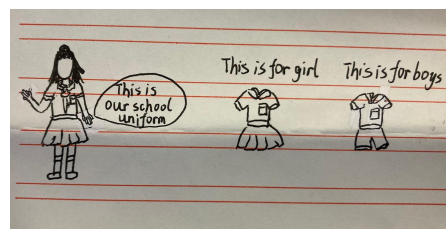 This is
our school
uniform
This is for girl
This is for boys